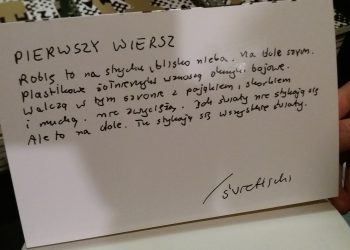 PIERWSZY WIERSZ
Robię to na strychu, blisko nieba. Na dole szron.
Plastikowe żołnierzyki wznoszą okrzyki bojowe.
Walczą w tym szronie z pająkiem i skorkiem
i muchą. Nie zwyciężą. Ich światy nie stykają się
Ale to na dole. Tu stykają się wszystkie światy.